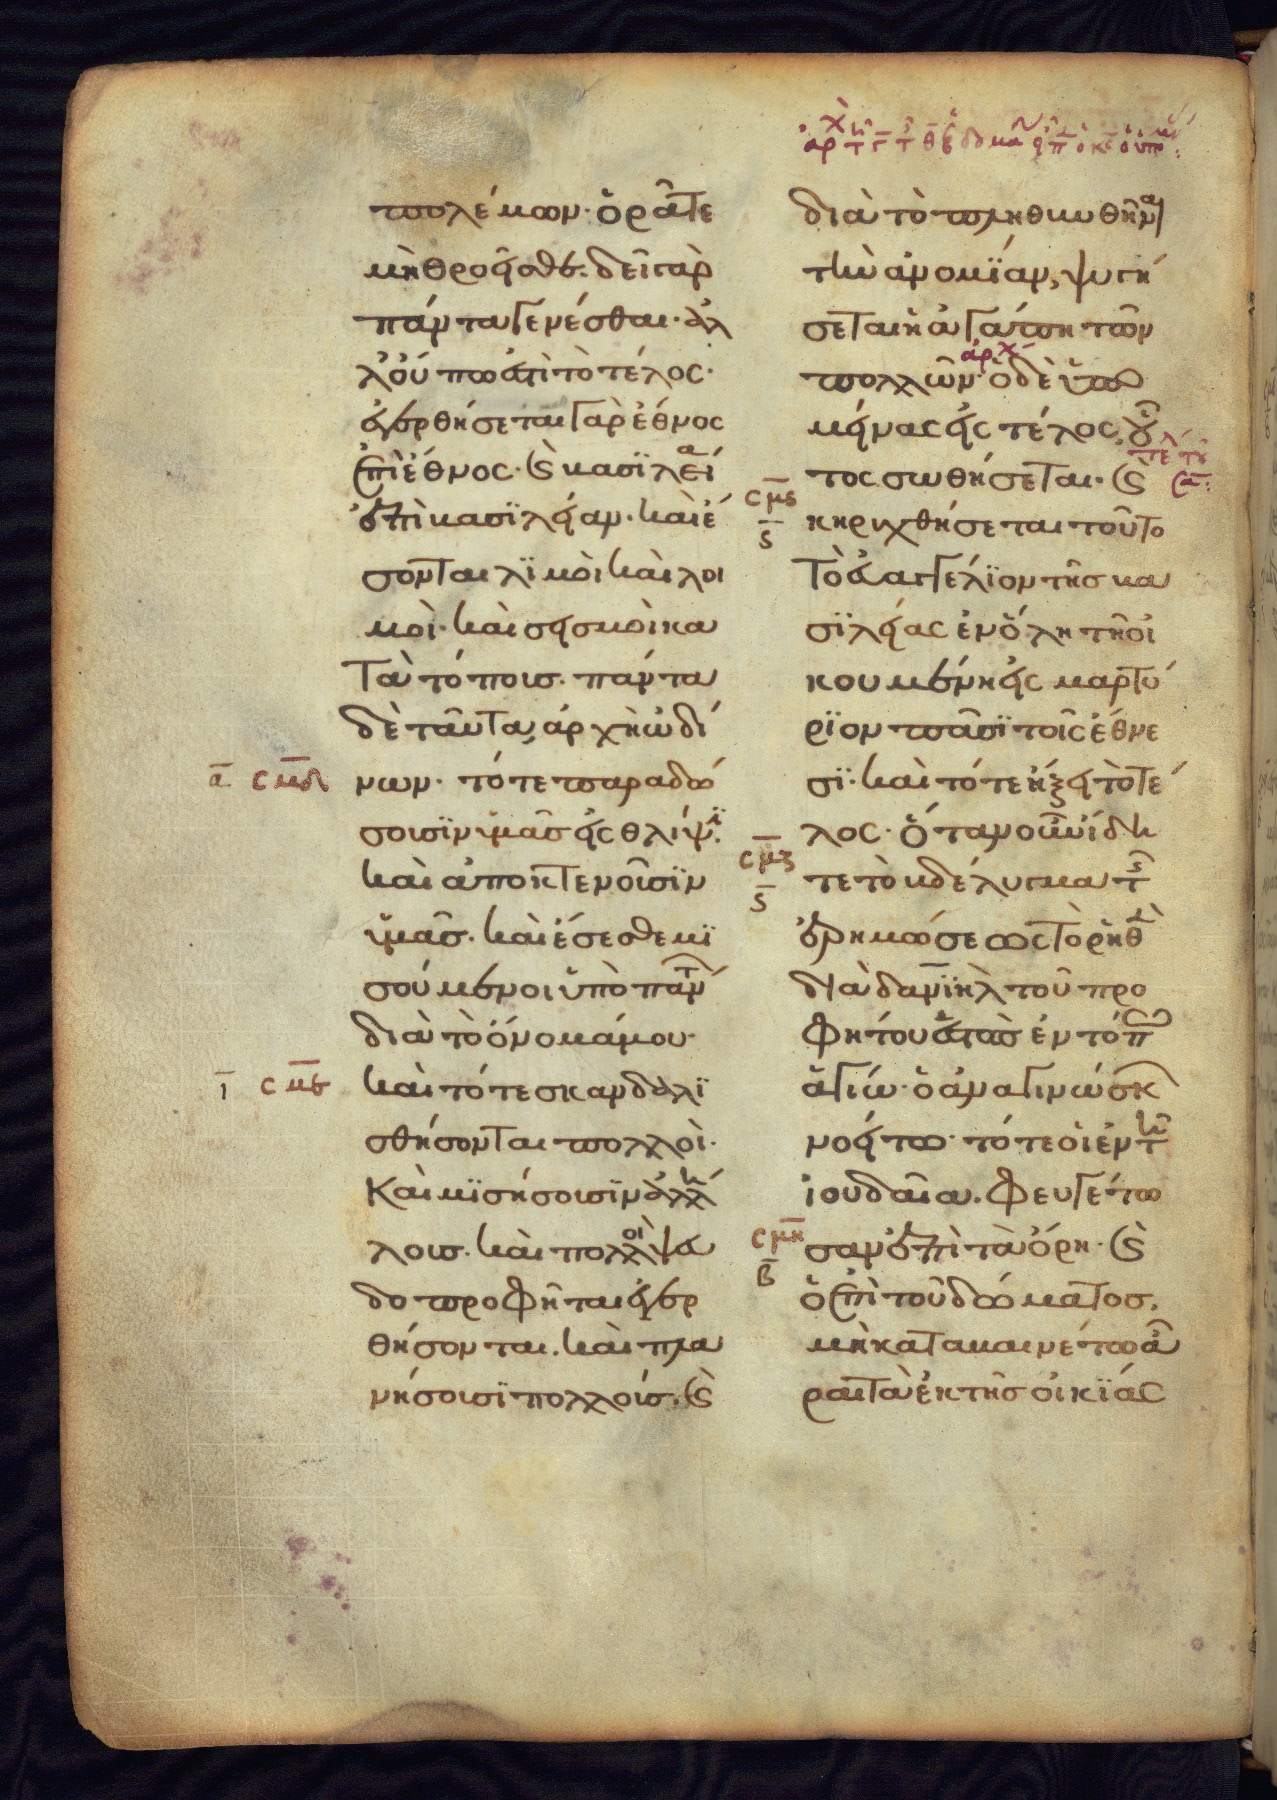 πολέμων· ὁρᾶτε
μὴ θροεῖσθε. δεῖ γὰρ
πάντα γενέσθαι· ἀλ
λ' οὔπω ἐστὶ τὸ τέλος·
ἐγερθήσεται γὰρ ἔθνος
ἐπὶ ἔθνος· ϗ βασϊλεία
ἐπὶ βασϊλείαν· καὶ ἔ
σονται λϊμοὶ καὶ λοι
μοὶ· καὶ σεισμοὶ κα
τὰ τόπους· πάντα
δὲ ταῦτα, ἀρχὴ ὠδί
α̅ σμ̅δ νων· τότε παραδώ
σουσϊν ὑμᾶς εἰς θλίψϊ̅.
καὶ ἀποκτενοῦσϊν
ὑμᾶς· καὶ ἔσεσθε μϊ
σούμενοι ὑπὸ πάν̅τ
διὰ τὸ ὄνομά μου·
ι̅ σμ̅ε καὶ τότε σκανδαλϊ
σθήσονται πολλοὶ·
Καὶ μϊσήσουσϊν ἀλλή
λους· καὶ πολλοὶ ψευ
δοπροφῆται ἐγερ
θήσονται. καὶ πλα
νήσουσϊ πολλούς· ϗ
διὰ τὸ πληθυνθῆναι
τὴν ἀνομΐαν, ψυγή
σεται ἡ ἀγάπη τῶν
ἀρχ
πολλῶν· ὁ δὲ ὑπο
μείνας εἰς τέλος, οὗ
τος σωθήσεται· ϗ
σμ̅ς ς̅ κηρυχθήσεται τοῦτο
τὸ εὐαγγέλϊον τῆς βα
σϊλείας ἐν ὅλη τῆ οἰ
κουμένη εἰς μαρτύ
ρϊον πᾶσϊ τοῖς ἔθνε
σϊ· καὶ τότε ἥξει τὸ τέ
λος· ὅταν οὖν ἴδη
σμ̅ζ ς̅ τε τὸ βδέλυγμα τ̅ς
ἐρημώσεως τὸ ῥηθὲ
διὰ δανϊὴλ τοῦ προ
φήτου ἑστὼς ἐν τόπω
ἁγίω· ὁ ἀναγινώσκ
νοείτω· τότε οἱ ἐν τῆ
ἰουδαία. φευγέτω
σμ̅η β̅ σαν ἐπὶ τὰ ὄρη· ϗ
ὁ ἐπὶ τοῦ δώματος.
μὴ καταβαινέτω ἆ
ραι τὰ ἐκ τῆς οἰκΐας